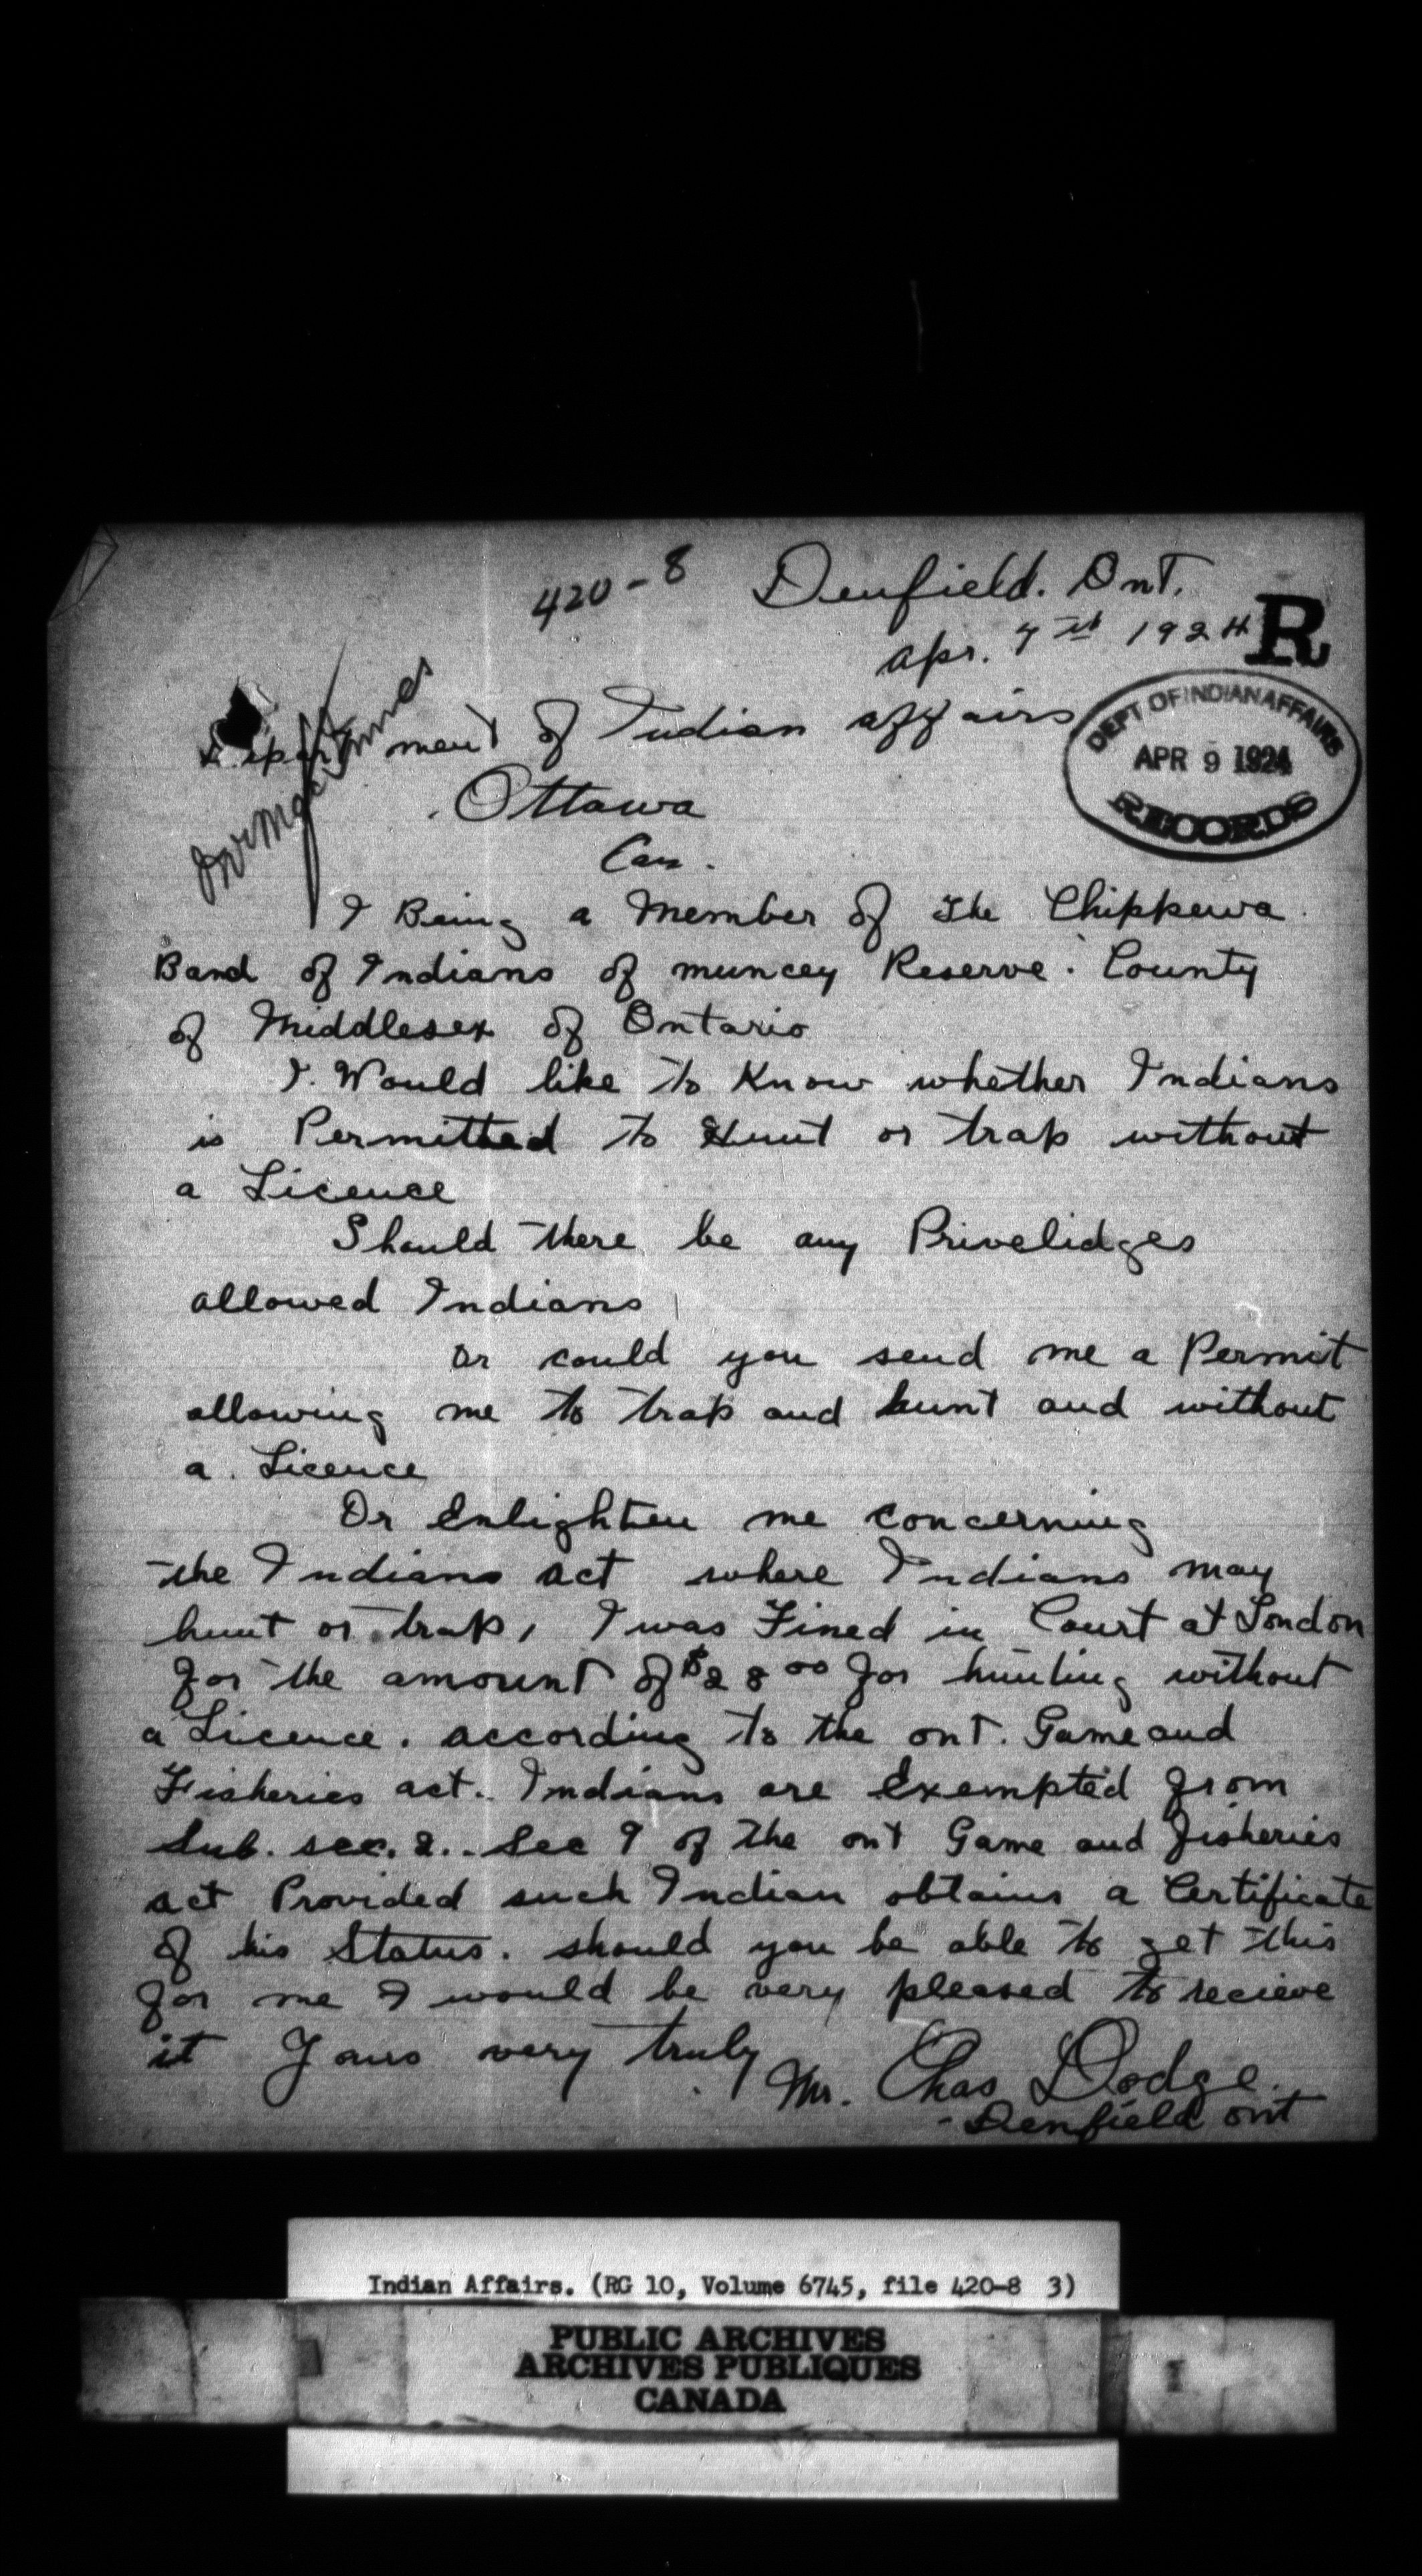 420-8 Denfield. Ont.
Apr. 7th 1924 R
Department of Indian affairs
DEPT OF INDIAN AFFAIRS
APR 9 1924
RECORDS
Ottawa
Can.
I Being a Member of The Chippewa
Band of Indians of muncey Reserve. County
of Middlesex of Ontario
I. Would like to Know whether Indians
is Permitted to Hunt or trap without
a Licence
Should there be any Privelidges
allowed Indians
or could you send me a Permit
allowing me to trap and hunt and without
a. Licence
Or Enlighten me concerning
the Indians act where Indians may
hunt or trap, I was Fined in Court at London
for the amount of $28 00 for hunting without
a Licence. according to the ont. Game and
Fisheries act. Indians are Exempted from
Sub. sec. 2.. Sec 9 of the ont Game and fisheries
act Provided such Indian obtains a Certificate
of his Status. should you be able to get this
for me I would be very pleased to recieve
it Yours very truly
Mr. Chas Dodge.
- Denfield ont
Indian Affairs. (RG 10, Volume 6745, file 420-8 3)
PUBLIC ARCHIVES
ARCHIVES PUBLIQUES
CANADA